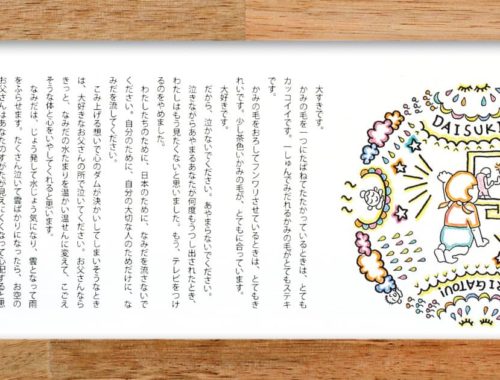 大すきです。
かみの毛を一つにたばねてたたかっているときは、とても
カッコイイです。一しゅんでみだれるかみの毛がとてもステキ
です。
かみの毛をおろしてフンワリさせているときは、とてもき
れいです。少し茶色いかみの毛が、とてもに合っています。
大好きです。
だから、泣かないでください。あやまらないでください。
泣きながらあやまるあなたが何度もうつし出されたとき、
わたしはもう見たくないと思いました。もう、テレビをつけ
るのをやめました。
わたしたちのために、日本のために、なみだを流さないで
ください。自分のために、自分の大切な人のためだけに、な
みだを流してください。
こみ上げる想いで心のダムが決かいしてしまいそうなとき
は、大好きなお父さんの所で泣いてください。お父さんなら
きっと、なみだの水たまりを温かい温せんに変えて、こごえ
そうな体と心をいやしてくれると思います。
なみだは、じょう発して水じょう気になり、雲となって雨
をふらせます。たくさん泣いて雲ばかりになったら、お空の
お父さんはあなたのすがたが見えにくくなって心配すると思
DAISUK
RIGATOU!